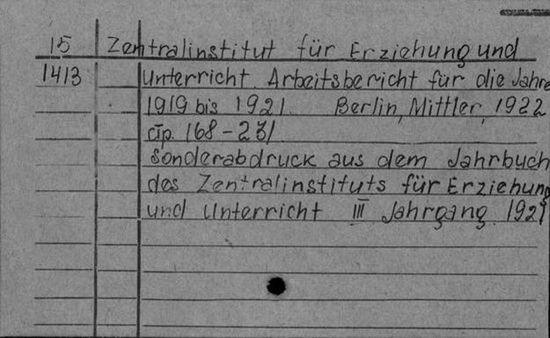 15 Zentralinstitut für Erziehung und
1413 Unterricht Arbeitsbericht für die Jahre
1919 bis 1921. Berlin, Mittler, 1922
стр. 168-231
Sonderabdruck aus dem Jahrbuch
des Zentralinstituts für Erziehung
und Unterricht III Jahrgang 1921